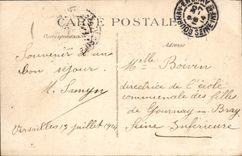 CARTE POSTALE
Correspondance
Adresse
Souvenir d'un
bon séjour.
H. Samyn
Versailles 13 juillet 1914
Melle Boivin
directrice de l'école
communale des filles
de Gournay-en-Bray
Seine Inférieure